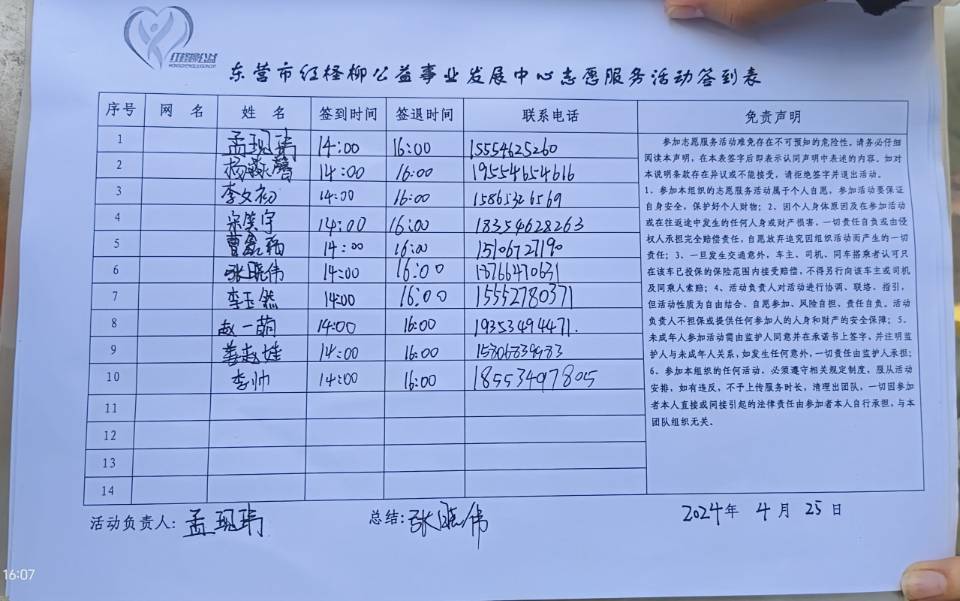 红柽柳公益
东营市红柽柳公益事业发展中心志愿服务活动签到表
序号 网 名 姓 名 签到时间 签退时间 联系电话 免责声明
1 孟现瑞 14:00 16:00 15554625260
2 14:00 16:00 19554654616
3 李文初 14:00 16:00 15865326569
4 宋笑宇 14:00 16:00 18354628263
5 14:00 16:00 15106727190
6 张晓伟 14:00 16:00 13766470631
7 李玉然 14:00 16:00 15552780371
8 赵一萌 14:00 16:00 19353494471.
9 姜赵娃 14:00 16:00 15806839983
10 李帅 14:00 16:00 18553497805
11
12
13
14
参加志愿服务活动难免存在不可预知的危险性，请务必仔细
阅读本声明，在本表签字后即表示认同声明中表述的内容。如对
本说明条款存在异议或不能接受，请拒绝签字并退出活动。
1、参加本组织的志愿服务活动属于个人自愿，参加活动要保证
自身安全，保护好个人财物；2、因个人身体原因及在参加活动
或在往返途中发生的任何人身或财产损害，一切责任自负或由侵
权人承担完全赔偿责任，自愿放弃追究因组织活动而产生的一切
责任；3、一旦发生交通意外，车主、司机、同车搭乘者认可只
在该车已投保的保险范围内接受赔偿，不得另行向该车主或司机
及同乘人索赔；4、活动负责人对活动进行协调、联络、指引，
但活动性质为自由结合、自愿参加、风险自担、责任自负。活动
负责人不担保或提供任何参加人的人身和财产的安全保障；5、
未成年人参加活动需由监护人同意并在承诺书上签字，并注明监
护人与未成年人关系，如发生任何意外，一切责任由监护人承担；
6、参加本组织的任何活动，必须遵守相关规定制度，服从活动
安排，如有违反，不予上传服务时长，清理出团队，一切因参加
者本人直接或间接引起的法律责任由参加者本人自行承担，与本
团队组织无关。
活动负责人：孟现瑞 总结：张晓伟 2024年 4月 25日
16:07